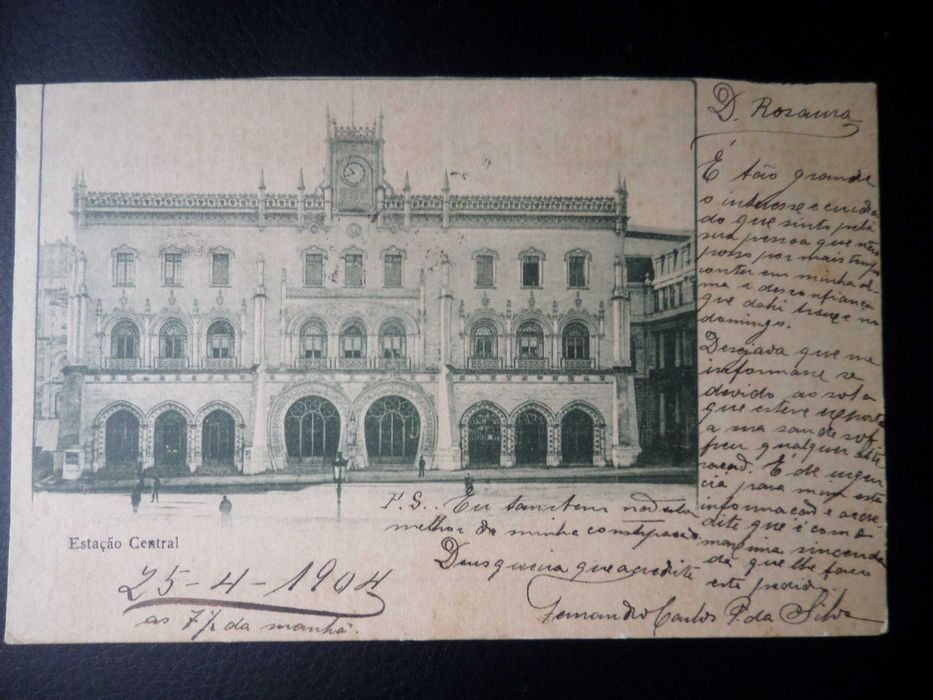 D. Rosaura
É tão grande
o interesse e cuida
do que sinto pela
sua pessoa que não
posso por mais tempo
conter em minha al
ma a desconfiança
que dahi trouxe no
domingo.
Desejada que me
informasse se
devido ao sol a
que esteve exposta
a sua saude sof
freu qualquer alte
ração. É de urgen
cia para mim esta
informação e acre
dite que é com a
maxima sincerida
de que lhe faço
este pedido.
Fernando Carlos P. da Silva
P. S. Eu tambem não estou
melhor da minha constipação
Deus queira que acredite
Estação Central
25-4-1904
as 7 ½ da manhã.